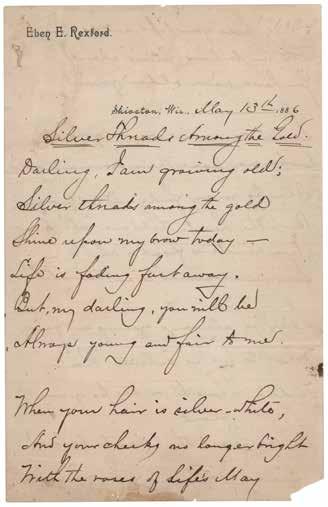 Eben E. Rexford.
Shiocton, Wis., May 13th, 1886
Silver Threads Among the Gold.
Darling, I am growing old;
Silver threads among the gold
Shine upon my brow today —
Life is fading fast away.
But, my darling, you will be
Always young and fair to me.
When your hair is silver-white,
And your cheeks no longer bright
With the roses of Life's May